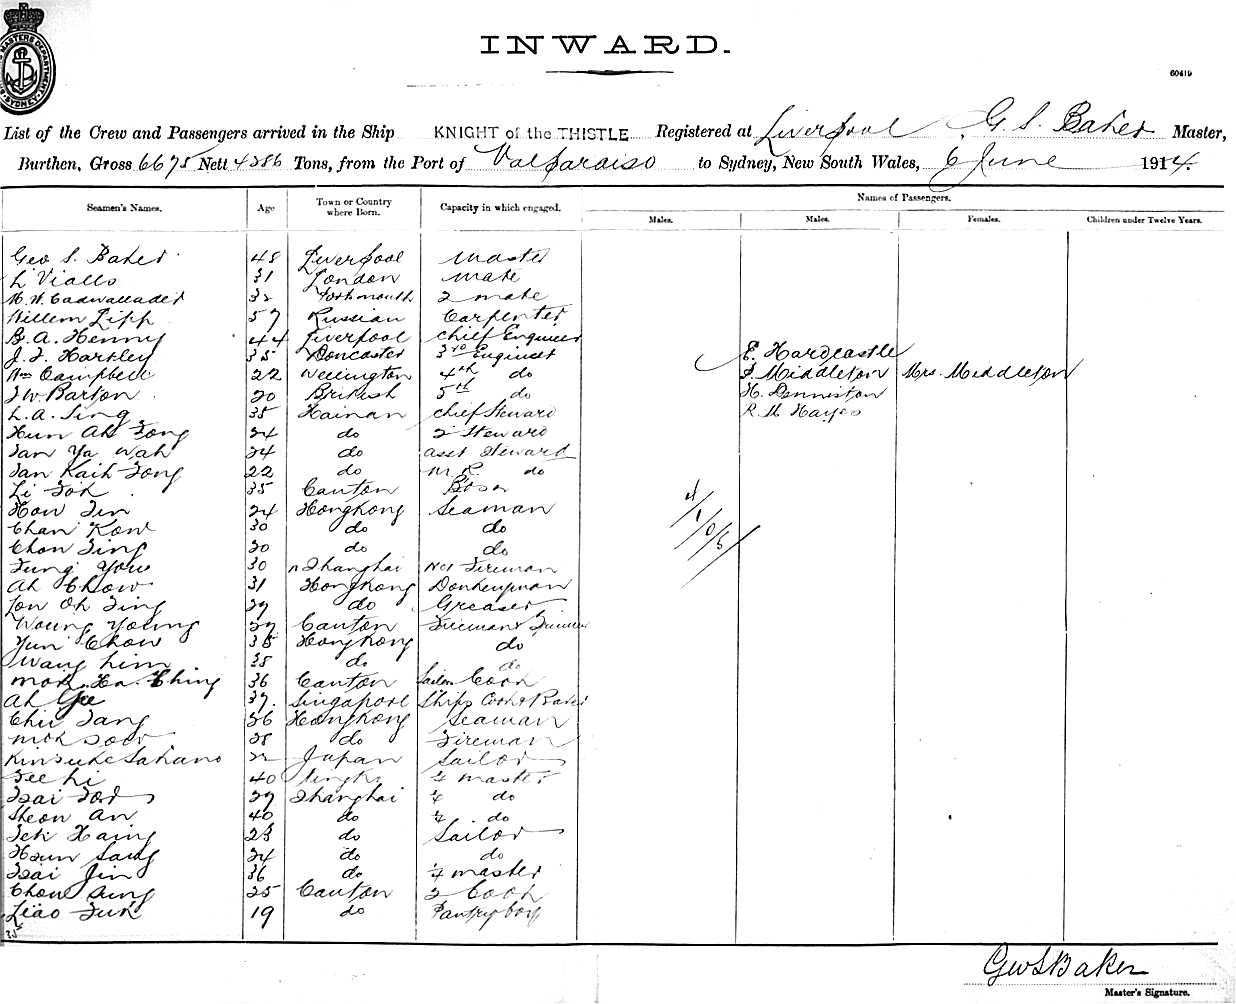 INWARD.
60419
List of the Crew and Passengers arrived in the Ship KNIGHT of the THISTLE Registered at Liverpool, G. S. Baker Master,
Burthen, Gross 6675 Nett 4386 Tons, from the Port of Valparaiso to Sydney, New South Wales, 6 June 1914.
Seamen's Names. Age Town or Country where Born. Capacity in which engaged. Names of Passengers.
Males. Males. Females. Children under Twelve Years.
Geo S. Baker 48 Liverpool Master
L Vialls 31 London Mate
W. Cadwallader 32 2 mate
Willem Lipp 57 Russian Carpenter
B. A. Henny 44 Liverpool chief Engineer
J. F. Hartley 35 Doncaster 3rd Engineer E. Hardcastle
Wm Campbell 22 Wellington 4th do F. Middleton Mrs. Middleton
J W. Barton 20 British 5th do H. Denniston
L. A. Sing 35 Hainan chief Steward R. M. Hayes
Hun Ah Fong 24 do 2 Steward
Tan Ya Wah 24 do asst Steward
Tan Kaih Fong 22 do M. R. do
Li Foh 35 Canton Bosn
How Tin 24 Hongkong Seaman
Chan Kow 30 do do
Chon Ting 30 do do
Fung You 30 Shanghai No1 Fireman
Ah Chow 31 Hongkong Donkeyman
Lon Oh Ting 39 do Greaser
Woung Young 39 Canton Fireman &
Yun Chow 38 Hongkong do
Wang him 38 do do
Mok Ha Ching 36 Canton Sailors Cook
Ah Gee 37. Singapore Ships Cook & Baker
Chii Tang 36 Hongkong Seaman
38 do Fireman
Kinsuke Sakano Japan Sailor
Fee hi 40 Ningpo ¼ master
Tsai For 39 Shanghai ¼ do
Sheon An 40 do ¼ do
Teh Haing 23 do Sailor
Hsun Sang 34 do do
Tsai Jin 36 do ¼ master
Chou Sung 25 Canton 2 Cook
Liao Fuk 19 do Pantryboy
35
Geo S Baker
Master's Signature.